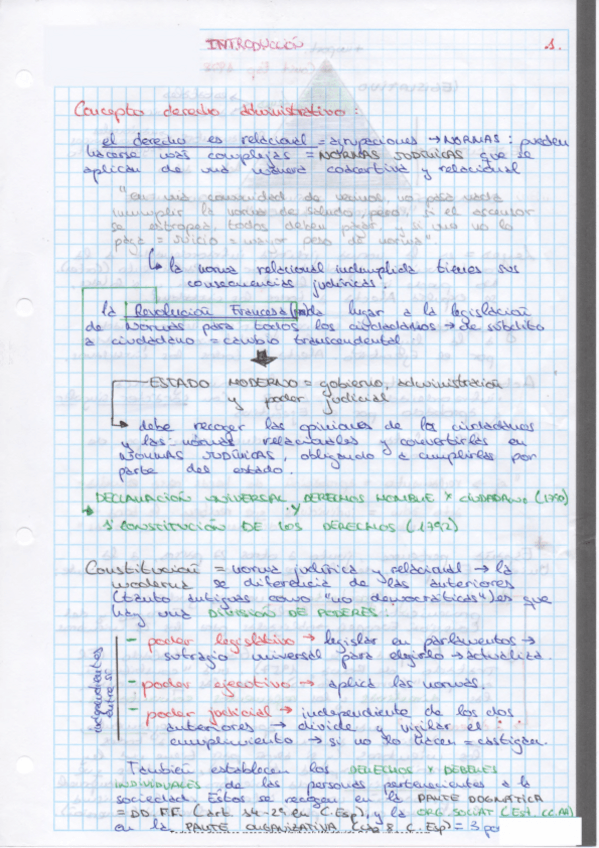 INTRODUCCIÓN
1.
Concepto derecho administrativo:
el derecho es relacional = agrupaciones → NORMAS: pueden
hacerse más complejas = NORMAS JURÍDICAS que se
aplican de una manera coercitiva y relacional
"en una comunidad de vecinos, no pasa nada
incumplir la norma de saludo, pero, si el ascensor
se estropea, todos deben pagar y si uno no lo
paga = juicio = mayor peso de norma"
↳ la norma relacional incumplida tienes sus
consecuencias jurídicas.
la Revolución Francesa da lugar a la legislación
de Normas para todos los ciudadanos → de súbdito
a ciudadano = cambio transcendental
ESTADO MODERNO = gobierno, administración
y poder judicial
debe recoger las opiniones de los ciudadanos
y las normas relacionales y convertirlas en
NORMAS JURÍDICAS, obligando a cumplirlas por
parte del estado.
DECLARACIÓN UNIVERSAL DERECHOS HOMBRE Y CIUDADANO (1790)
y
1ª CONSTITUCIÓN DE LOS DERECHOS (1792)
Constitución = norma jurídica y relacional → la
moderna se diferencia de las anteriores
(tanto antiguas como "no democráticas") es que
hay una DIVISIÓN DE PODERES:
independientes
entre sí
- poder legislativo → legislar en parlamentos →
sufragio universal para elegirlo → actualiza.
- poder ejecutivo → aplica las normas.
- poder judicial → independiente de los dos
anteriores → divide y vigilar el
cumplimiento → si no lo hacen = castigan.
También establecen los DERECHOS Y DEBERES
INDIVIDUALES de las personas pertenecientes a la
sociedad. Estos se recogen en la PARTE DOGMÁTICA
= DD.FF. (art. 14-29 en C.Esp), y la ORG. SOCIAL (Est. CC.AA)
en la PARTE ORGANIZATIVA C. Esp) = 3 po